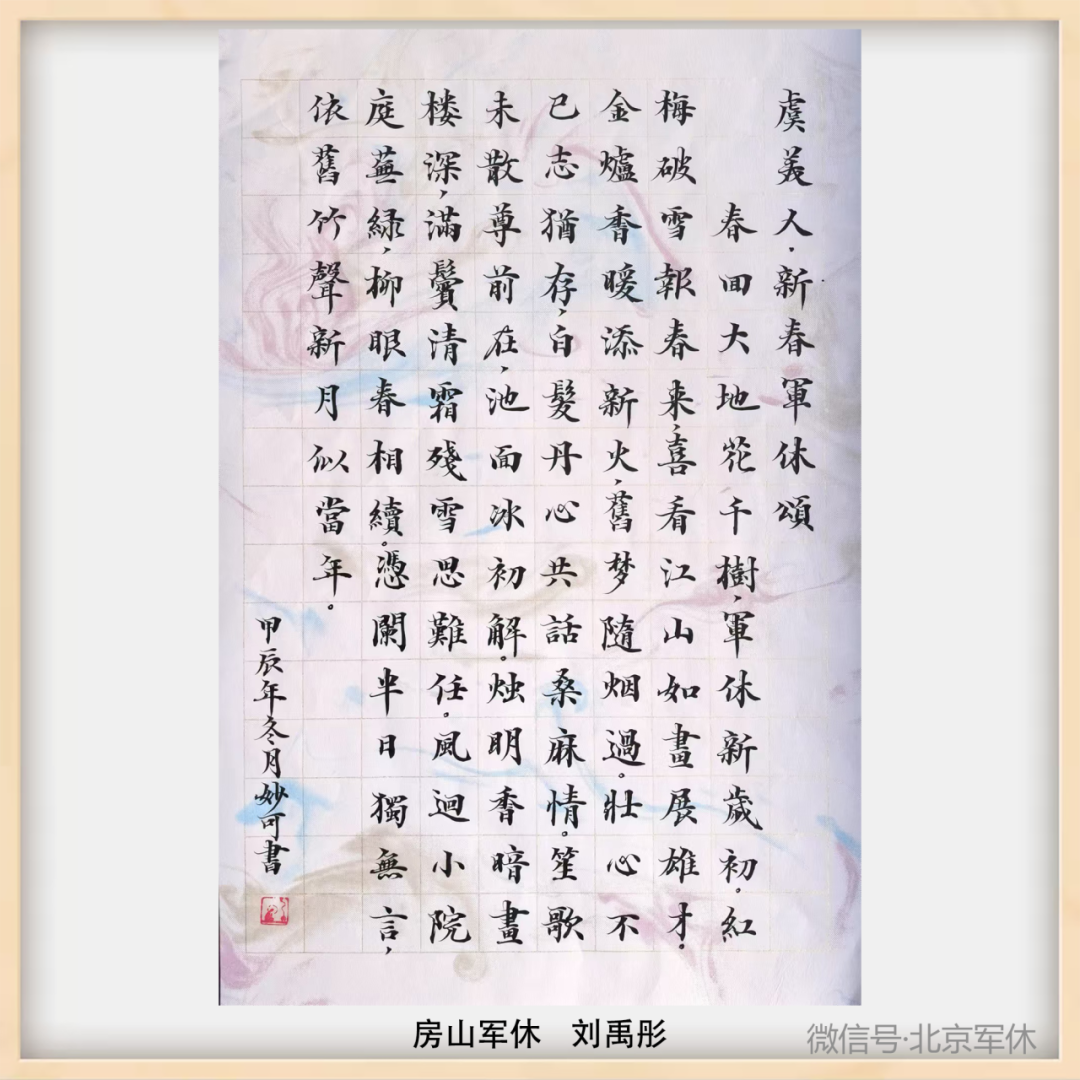 虞美人·新春軍休頌
春回大地花千樹，軍休新歲初。紅
梅破雪報春来，喜看江山如畫展雄才。
金爐香暖添新火，舊梦隨烟過。壮心不
已志猶存，白髮丹心共話桑麻情。笙歌
未散尊前在，池面冰初解。烛明香暗畫
楼深，滿鬢清霜殘雪思難任。風迴小院
庭蕪緑，柳眼春相續。憑闌半日獨無言，
依舊竹聲新月似當年。
甲辰年冬月妙可書
房山军休 刘禹彤
微信号·北京军休